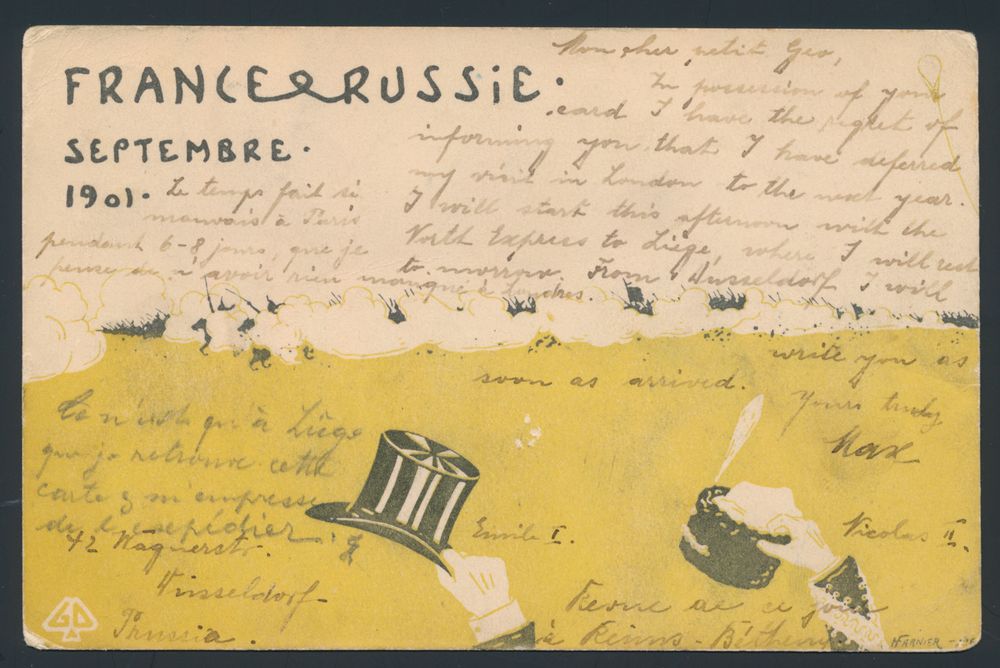 FRANCE & RUSSiE.
SEPTEMBRE.
1901.
Mon cher petit Geo,
In possession of your
card I have the regret of
informing you that I have deferred
my visit in London to the next year.
I will start this afternoon with the
North Express to Liège, where I will rest
to-morrow. From Dusseldorf I will
write you as
soon as arrived.
Yours truly
Max
Le temps fait si
mauvais à Paris
pendant 6-8 jours, que je
pense de n'avoir rien manqué à Londres.
Ce n'est qu'à Liège
que je retrouve cette
carte & m'empresse
de l'
42 Wagnerstr.
Dusseldorf
Prussia.
Emile I.
Nicolas II.
Revue de ce jour
à Reims-Bétheny
GD
H FARNIER